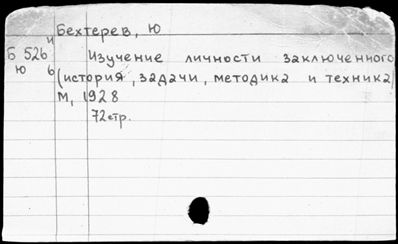 Бехтерев, Ю
и
Б 526 Изучение личности заключенного
Ю б (история, задачи, методика и техника)
М, 1928
72стр.